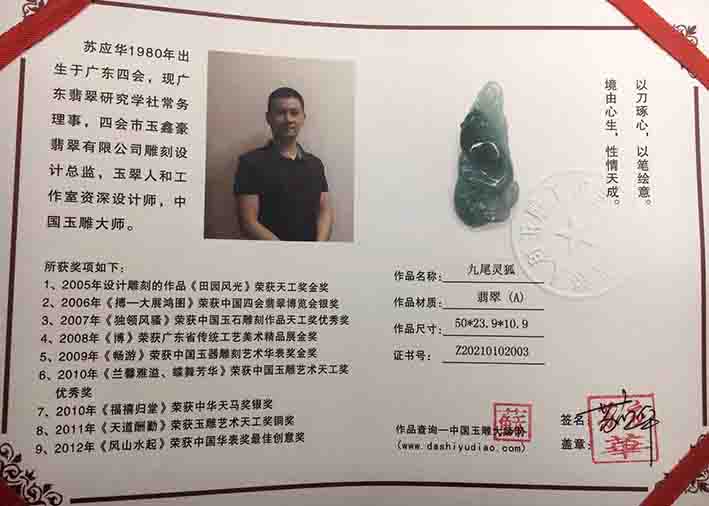 苏应华1980年出
生于广东四会，现广
东翡翠研究学社常务
理事，四会市玉鑫豪
翡翠有限公司雕刻设
计总监，玉翠人和工
作室资深设计师，中
国玉雕大师。
以刀琢心，以笔绘意。
境由心生，性情天成。
所获奖项如下：
1、2005年设计雕刻的作品《田园风光》荣获天工奖金奖
2、2006年《搏一大展鸿图》荣获中国四会翡翠博览会银奖
3、2007年《独领风骚》荣获中国玉石雕刻作品天工奖优秀奖
4、2008年《博》荣获广东省传统工艺美术精品展金奖
5、2009年《畅游》荣获中国玉器雕刻艺术华表奖金奖
6、2010年《兰馨雅溢、蝶舞芳华》荣获中国玉雕艺术天工奖
优秀奖
7、2010年《福禧归堂》荣获中华天马奖银奖
8、2011年《天道酬勤》荣获玉雕艺术天工奖铜奖
9、2012年《风山水起》荣获中国华表奖最佳创意奖
作品名称：九尾灵狐
作品材质：翡翠（A）
作品尺寸：50*23.9*10.9
证书号：Z20210102003
作品查询—中国玉雕大师网
(www.dashiyudiao.com)
签名：苏应华
盖章：